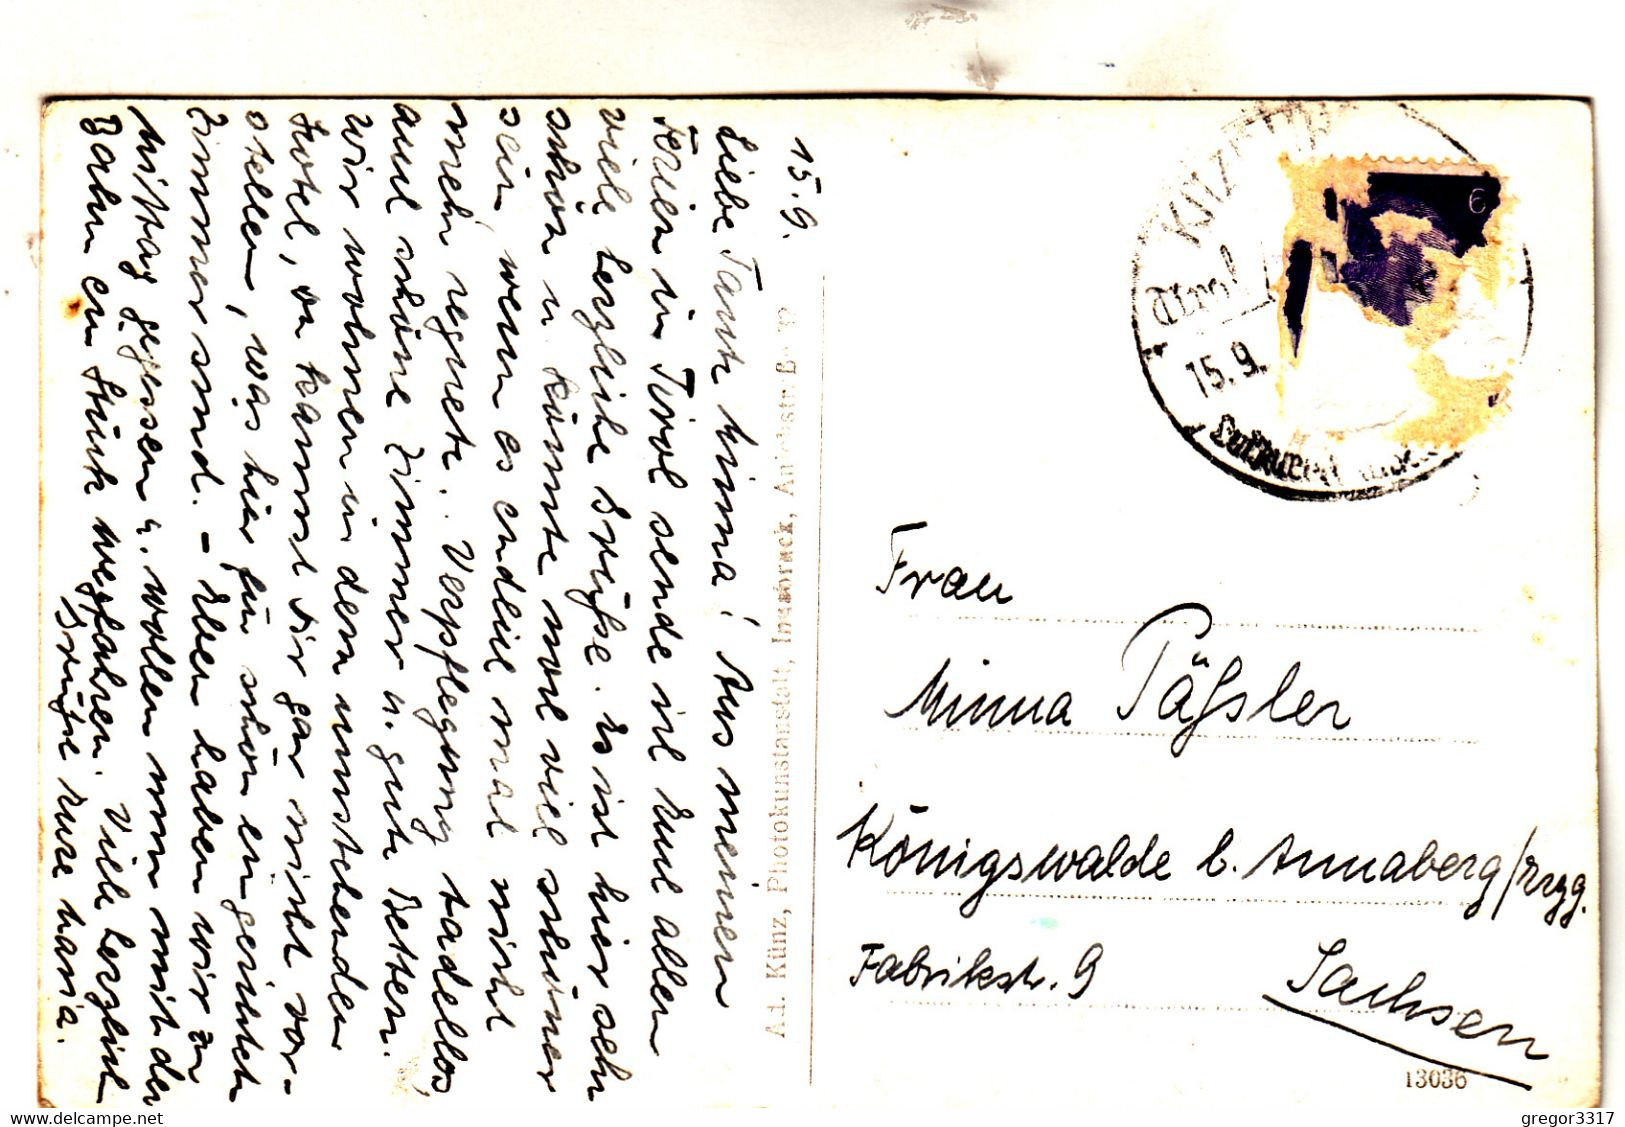 15.9.
Liebe Tante Minna! Aus meinen
Ferien in Tirol sende ich Euch allen
viele herzliche Grüße. Es ist hier sehr
schön u. könnte noch viel schöner
sein, wenn es endlich mal nicht
mehr regnete.. Verpflegung tadellos,
auch schöne Zimmer u. gute Betten.
Wir wohnen in dem umstehenden
Hotel, Du kannst Dir gar nicht vor-
stellen, was hier für schön eingerichtete
Zimmer sind. - Eben haben wir zu
Mittag gegessen u. wollen nun mit der
Bahn ein Stück wegfahren. Viele herzlich
Grüße Eure Maria.
Ad. Künz, Photokunstanstalt, Innsbruck,
KITZBÜHEL
(Tirol)
15.9.
6
Frau
Minna Päßler
Königswalde b. Annaberg/Erzg.
Fabrikstr. 9
Sachsen
13036
www.delcampe.net
gregor3317